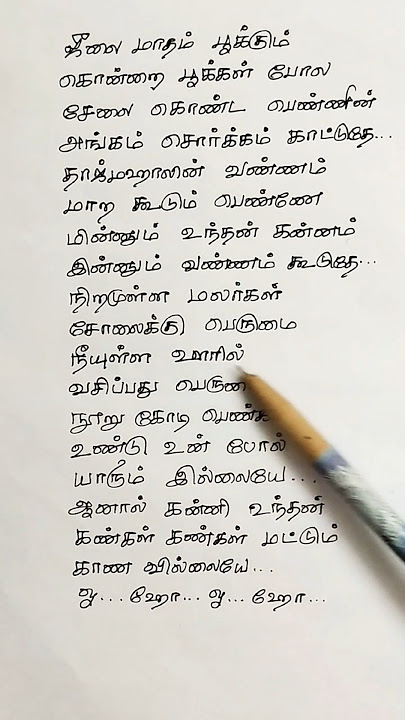 ஜூலை மாதம் பூக்கும்
கொன்றை பூக்கள் போல
சேலை கொண்ட பெண்ணின்
அங்கம் சொர்க்கம் காட்டுதே...
தாஜ்மஹாலின் வண்ணம்
மாற கூடும் பெண்ணே
மின்னும் உந்தன் கன்னம்
இன்னும் வண்ணம் கூடுதே...
நிறமுள்ள மலர்கள்
சோலைக்கு பெருமை
நீயுள்ள ஊரில்
வசிப்பது
நூறு கோடி
உண்டு உன் போல்
யாரும் இல்லையே...
ஆனால் கன்னி உந்தன்
கண்கள் கண்கள் மட்டும்
காண வில்லையே...
ஓ... ஹோ... ஓ... ஹோ...